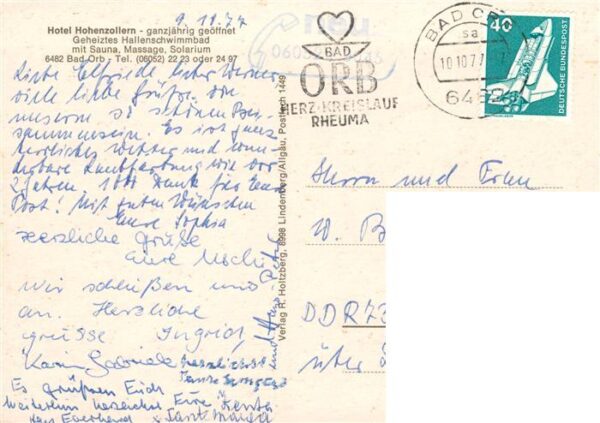 9.10.77
Hotel Hohenzollern - ganzjährig geöffnet
Geheiztes Hallenschwimmbad
mit Sauna, Massage, Solarium
6482 Bad-Orb - Tel. (06052) 22 23 oder 24 97
Liebe Elfriede lieber Werner
viele liebe Grüße von
unserem so schönen
sammensein. Es ist ganz
herrliches Wetter und wun-
derbare Laubfärbung wie vor
2 Jahren. 1000 Dank für Eure
Post! Mit guten Wünschen
Eure Sophia
Herzliche Grüße
Eure Uschi
Wir schließen uns
an. Herzliche
grüsse Ingrid
Karin Gabriele
Es grüßen Euch
weiterhin herzlichst Eure
Eberhard Tante
Verlag R. Holtzberg, 8998 Lindenberg/Allgäu, Postfach 1449
BAD
ORB
HERZ-KREISLAUF
RHEUMA
BAD ORB
sa
10.10.77
6482
40
DEUTSCHE BUNDESPOST
Herrn und Frau
W. B
DDR
über